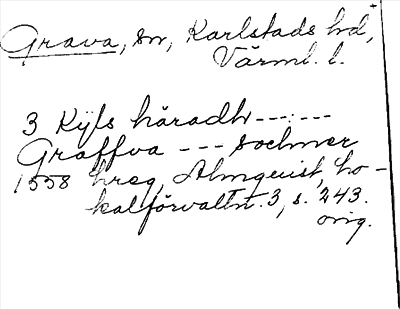 Grava, sn, Karlstads hd,
Värml. l.
3 Kijls häradh ------
Graffva --- sochner
1558 hreg, Almquist, Lo-
kalförvaltn. 3, s. 243.
orig.